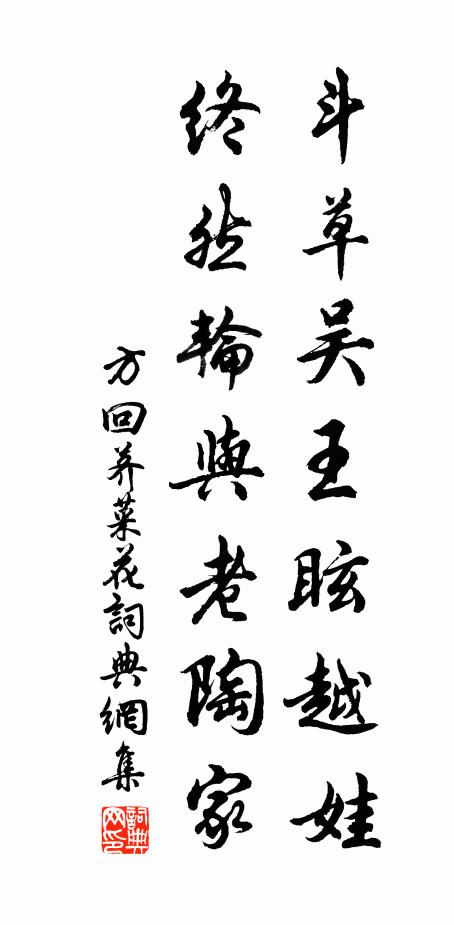 斗草吴王眩越娃
终然輪與老陶家
方回荠菜花詞典網集
詞典網印